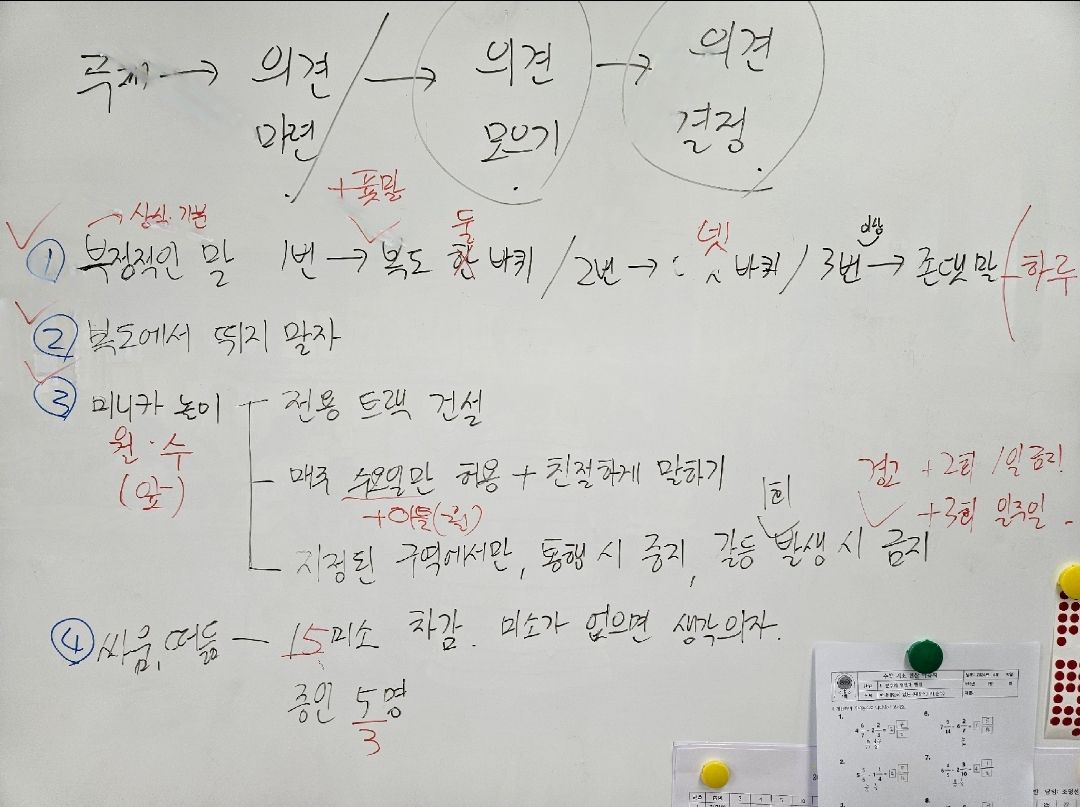 주제 → 의견 마련 → 의견 모으기 → 의견 결정
+ 푯말
→ 상식·기본
① 부정적인 말 1번 → 복도 한 둘 바퀴 / 2번 → 넷 바퀴 / 3번 이상 → 존댓말 (하루
② 복도에서 뛰지 말자
③ 미니카 놀이 전용 트랙 건설
월·수
(앞)
매주 수요일만 허용 + 친절하게 말하기
1회
경고 +2회 1일 금지
+3회 일주일
지정된 구역에서만, 통행 시 중지, 갈등 발생 시 금지
④ 싸움, 떠듦 — 15 미소 차감. 미소가 없으면 생각의자.
증인 5명
3